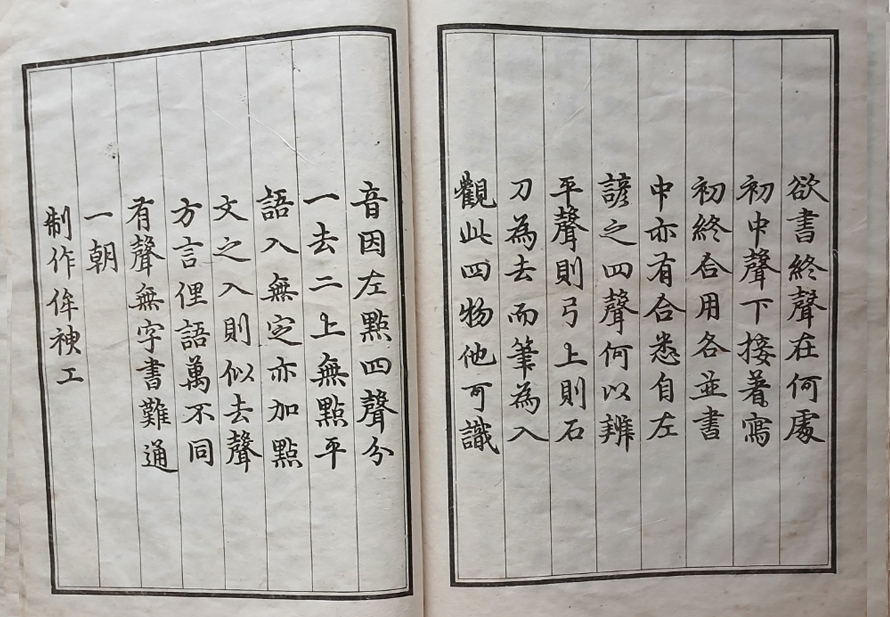 欲書終聲在何處
初中聲下接著寫
初終合用各並書
中亦有合悉自左
諺之四聲何以辨
平聲則弓上則石
刀為去而筆為入
觀此四物他可識
音因左點四聲分
一去二上無點平
語入無定亦加點
文之入則似去聲
方言俚語萬不同
有聲無字書難通
一朝
制作侔神工